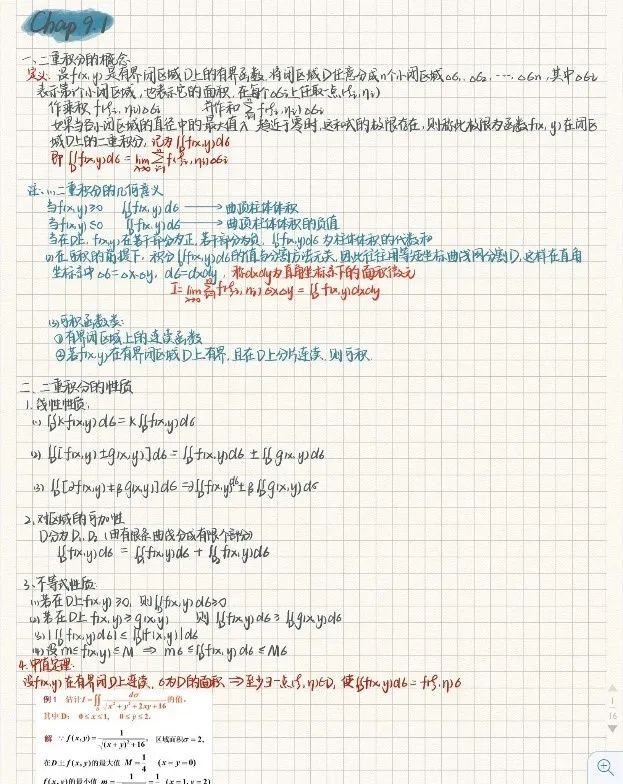 Chap 9.1
一、二重积分的概念
定义：设f(x,y)是有界闭区域D上的有界函数，将闭区域D任意分成n个小闭区域Δσ₁, Δσ₂, …, Δσn，其中Δσi
表示第i个小闭区域，也表示它的面积，在每个Δσi上任取一点(ξi, ηi)
作乘积 f(ξi, ηi)Δσi 并作和 Σf(ξi, ηi)Δσi
如果当各小闭区域的直径中的最大值λ趋近于零时，这和式的极限存在，则称此极限为函数f(x,y)在闭区
域D上的二重积分，记为∬f(x,y)dσ
即 ∬f(x,y)dσ = lim Σ f(ξi, ηi)Δσi
注：(1)二重积分的几何意义
当f(x,y)≥0 ∬f(x,y)dσ → 曲顶柱体体积
当f(x,y)≤0 ∬f(x,y)dσ → 曲顶柱体体积的负值
当在D上，f(x,y)在若干部分为正，若干部分为负，∬f(x,y)dσ为柱体体积的代数和
(2)在可积的前提下，积分∬f(x,y)dσ的值与分割方法无关，因此往往用等距坐标曲线网分割D，这样在直角
坐标系中Δσ=Δx·Δy，dσ=dxdy，称dxdy为直角坐标系下的面积微元
I=lim Σ f(ξi, ηi)ΔxΔy = ∬f(x,y)dxdy
(3)可积函数类：
①有界闭区域上的连续函数
②若f(x,y)在有界闭区域D上有界，且在D上分片连续，则可积
二、二重积分的性质
1.线性性质：
(1) ∬kf(x,y)dσ = k∬f(x,y)dσ
(2) ∬[f(x,y)±g(x,y)]dσ = ∬f(x,y)dσ ± ∬g(x,y)dσ
(3) ∬[αf(x,y)±βg(x,y)]dσ = α∬f(x,y)dσ ± β∬g(x,y)dσ
2.对区域的可加性
D分为D₁、D₂（由有限条曲线分成有限个部分）
∬f(x,y)dσ = ∬f(x,y)dσ + ∬f(x,y)dσ
3.不等式性质：
(1)若在D上f(x,y)≥0，则∬f(x,y)dσ≥0
(2)若在D上f(x,y)≥g(x,y) 则∬f(x,y)dσ≥∬g(x,y)dσ
(3) |∬f(x,y)dσ| ≤ ∬|f(x,y)|dσ
(4)设m≤f(x,y)≤M ⇒ mσ≤∬f(x,y)dσ≤Mσ
4.中值定理：
设f(x,y)在有界闭D上连续，σ为D的面积 ⇒ 至少∃一点(ξ,η)∈D，使∬f(x,y)dσ = f(ξ,η)σ
例1 估计 I=∬ dσ/√(x²+y²+2xy+16) 的值，
其中 D: 0≤x≤1, 0≤y≤2.
解 ∵ f(x,y)=1/√((x+y)²+16)， 区域面积σ=2，
在D上f(x,y)的最大值 M=1/4 (x=y=0)
f(x,y)的最小值 (x=1,y=2)
1
16